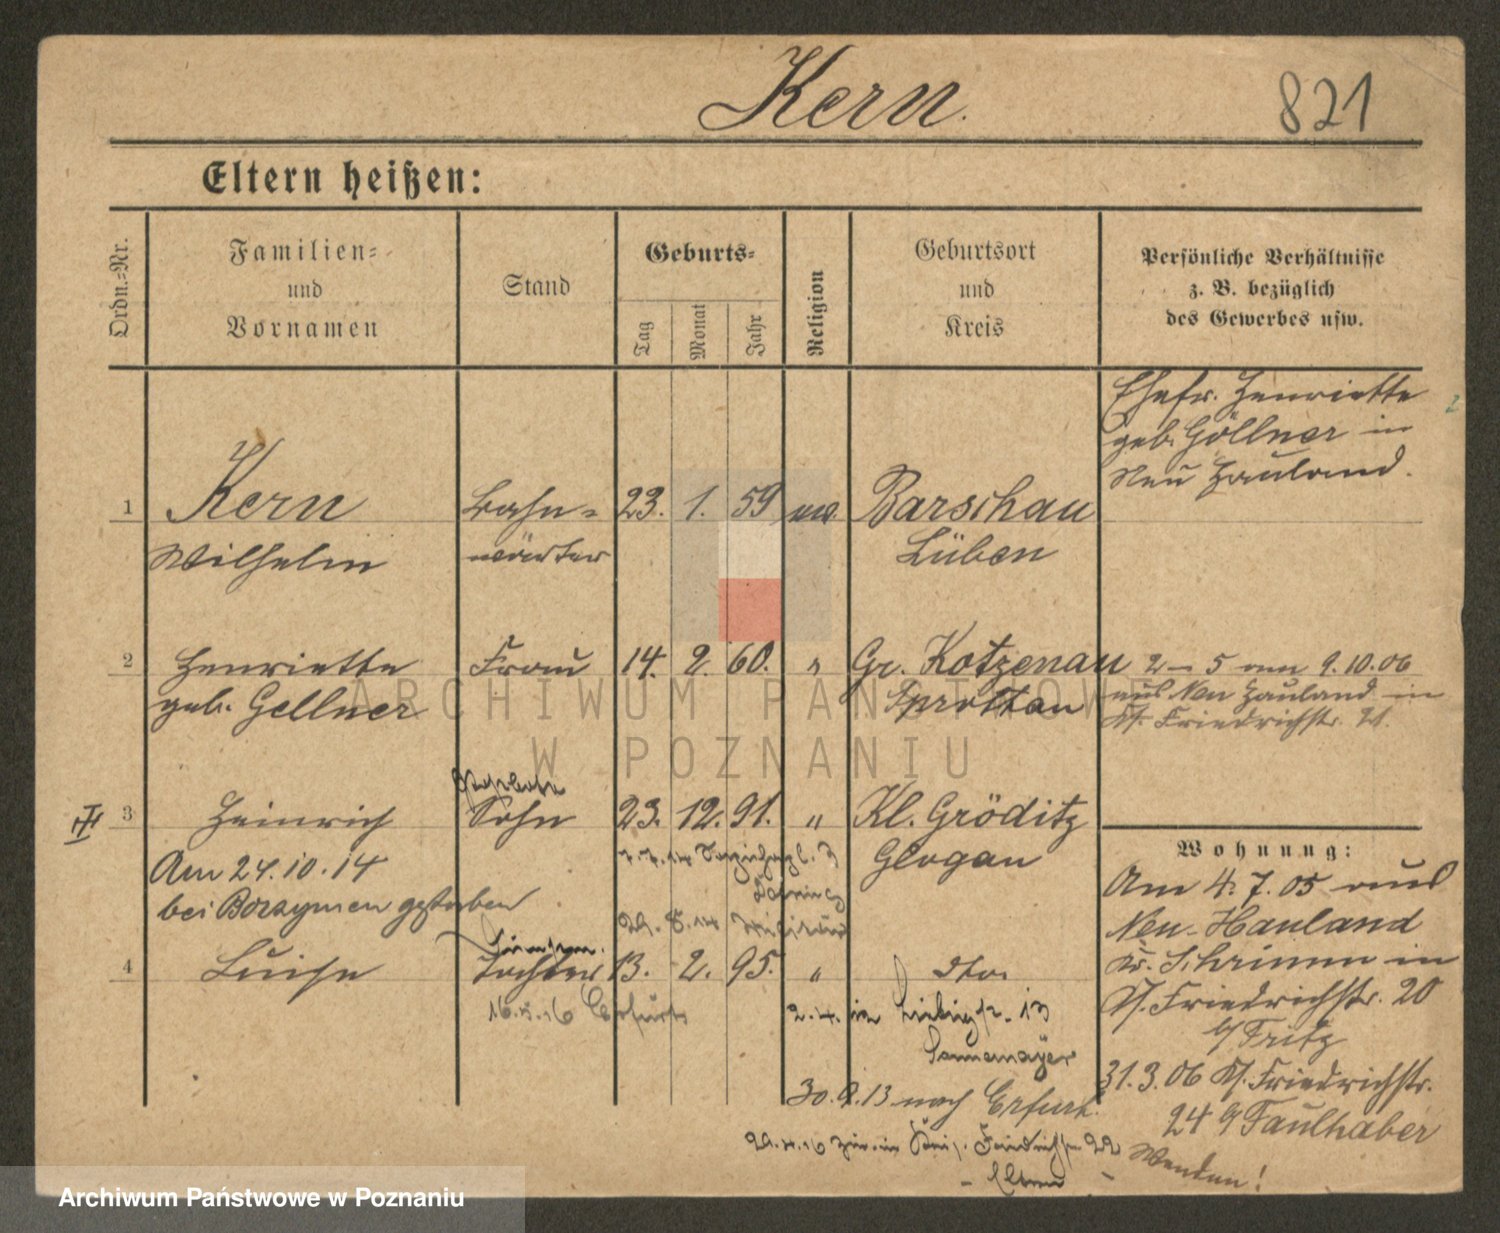 Kern.
821
Eltern heißen:
Ordn.-Nr.
Familien-
und
Vornamen
Stand
Geburts-
Tag
Monat
Jahr
Religion
Geburtsort
und
Kreis
Persönliche Verhältnisse
z. B. bezüglich
des Gewerbes usw.
Ehefr. Henriette
geb. Göllner in
Neu Hauland.
1 Kern Bahn- 23. 1. 59 ev. Barschau
Wilhelm wärter Lüben
2 Henriette Frau 14. 2. 60. " Gr. Kotzenau
geb. Gellner Sprottau
2 – 5 am 9.10.06
aus Neu Hauland in
Kl. Friedrichstr. 21.
III 3 Heinrich Sohn 23. 12. 91. " Kl. Gröditz
Glogau
7.7.14
Am 24.10.14
bei Borzymen gestorben
29. 8. 14
4 Luise Tochter 13. 2. 95. " dto.
16.5.16 Erfurt
2.4. in 13
Sannemayer
30. 9. 13 nach Erfurt.
22
Eltern
Wohnung:
Am 4. 7. 05 aus
Neu-Hauland
Kr. Schrimm in
Kl. Friedrichstr. 20
b/ Fritz
31.3.06 Kl. Friedrichstr.
24 b/ Faulhaber
Wenden!
ARCHIWUM PAŃSTWOWE
W POZNANIU
Archiwum Państwowe w Poznaniu